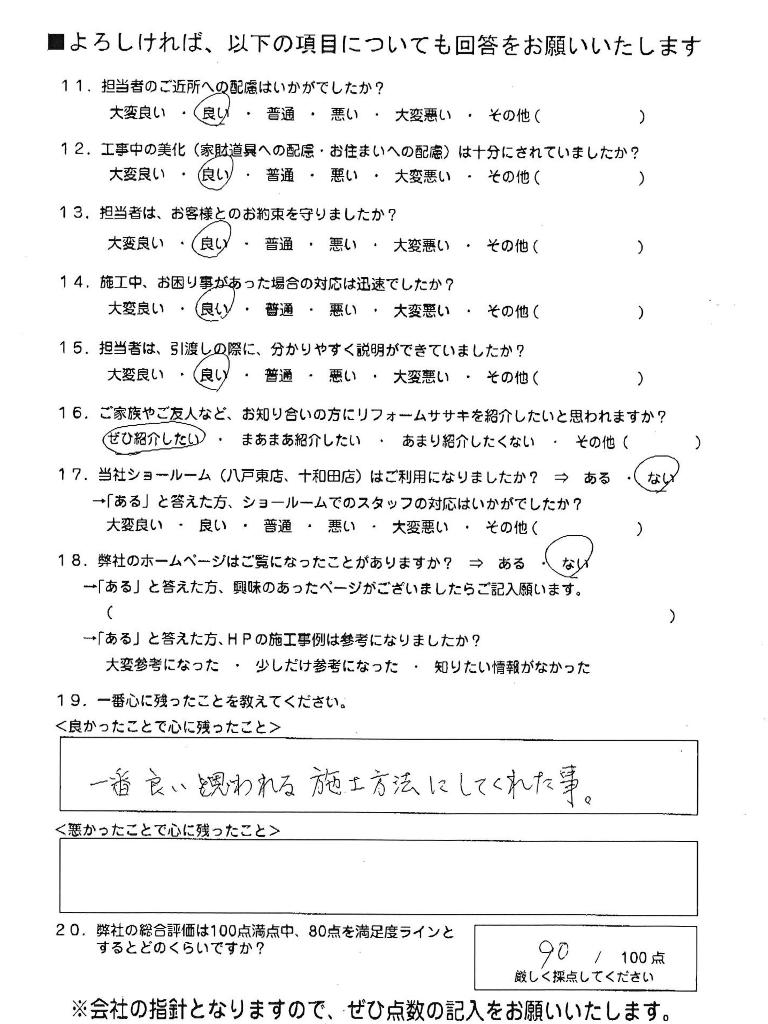 ■よろしければ、以下の項目についても回答をお願いいたします
11．担当者のご近所への配慮はいかがでしたか？
大変良い ・ 良い ・ 普通 ・ 悪い ・ 大変悪い ・ その他（　　　）
12．工事中の美化（家財道具への配慮・お住まいへの配慮）は十分にされていましたか？
大変良い ・ 良い ・ 普通 ・ 悪い ・ 大変悪い ・ その他（　　　）
13．担当者は、お客様とのお約束を守りましたか？
大変良い ・ 良い ・ 普通 ・ 悪い ・ 大変悪い ・ その他（　　　）
14．施工中、お困り事があった場合の対応は迅速でしたか？
大変良い ・ 良い ・ 普通 ・ 悪い ・ 大変悪い ・ その他（　　　）
15．担当者は、引渡しの際に、分かりやすく説明ができていましたか？
大変良い ・ 良い ・ 普通 ・ 悪い ・ 大変悪い ・ その他（　　　）
16．ご家族やご友人など、お知り合いの方にリフォームササキを紹介したいと思われますか？
ぜひ紹介したい ・ まあまあ紹介したい ・ あまり紹介したくない ・ その他（　　　）
17．当社ショールーム（八戸東店、十和田店）はご利用になりましたか？ ⇒ ある ・ ない
→「ある」と答えた方、ショールームでのスタッフの対応はいかがでしたか？
大変良い ・ 良い ・ 普通 ・ 悪い ・ 大変悪い ・ その他（　　　）
18．弊社のホームページはご覧になったことがありますか？ ⇒ ある ・ ない
→「ある」と答えた方、興味のあったページがございましたらご記入願います。
（　　　）
→「ある」と答えた方、ＨＰの施工事例は参考になりましたか？
大変参考になった ・ 少しだけ参考になった ・ 知りたい情報がなかった
19．一番心に残ったことを教えてください。
＜良かったことで心に残ったこと＞
一番良いと思われる施工方法にしてくれた事。
＜悪かったことで心に残ったこと＞
20．弊社の総合評価は100点満点中、80点を満足度ラインと
するとどのくらいですか？
90 / 100点
厳しく採点してください
※会社の指針となりますので、ぜひ点数の記入をお願いいたします。